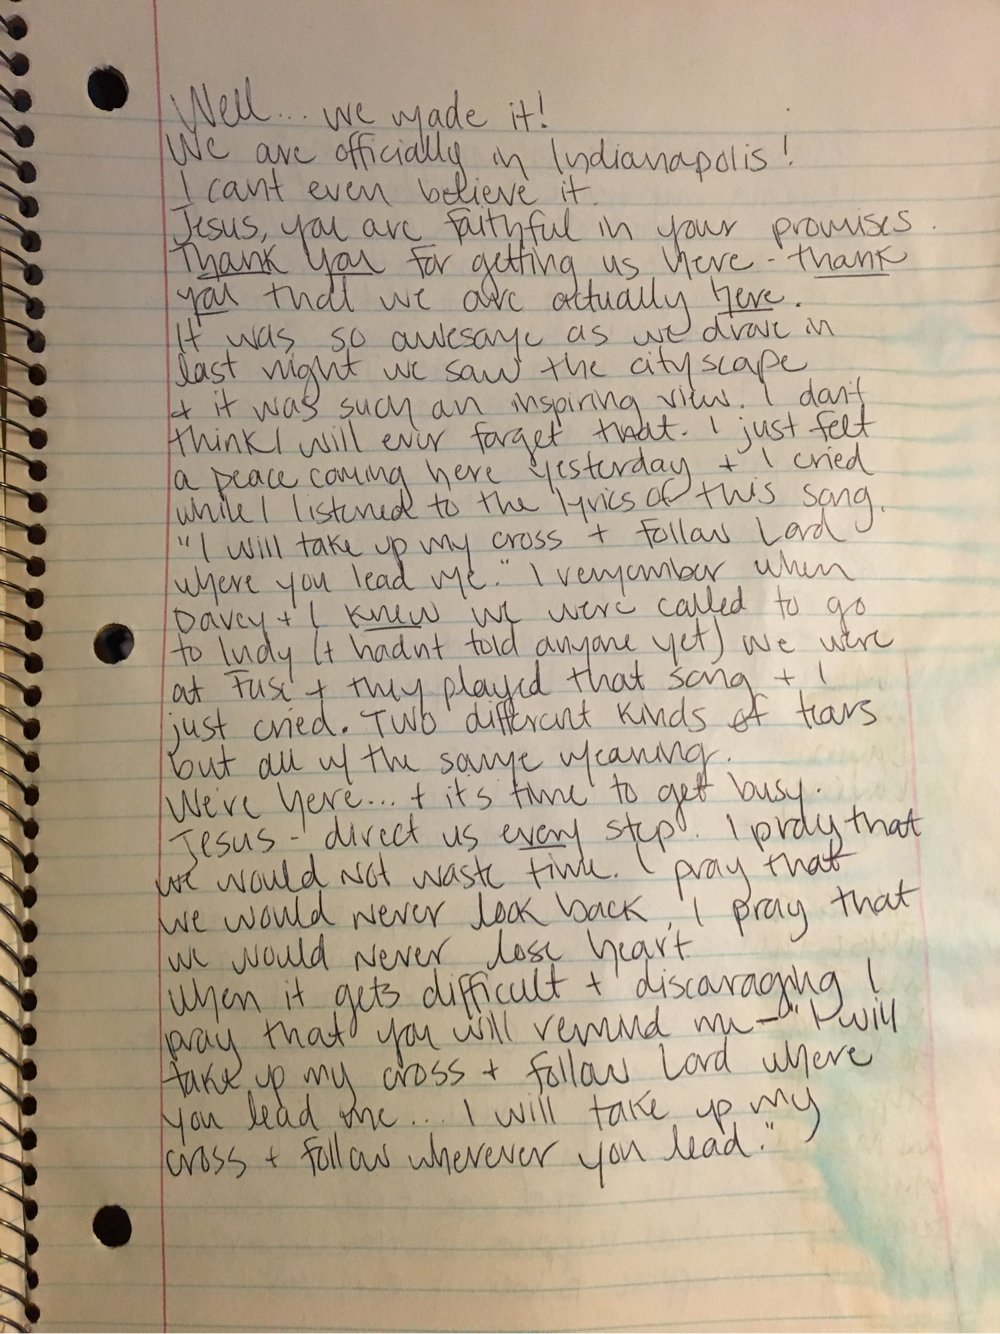 Well... we made it!
We are officially in Indianapolis!
I cant even believe it.
Jesus, you are faithful in your promises.
Thank you for getting us here - thank
you that we are actually here.
It was so awesome as we drove in
last night we saw the cityscape
+ it was such an inspiring view. I don't
think I will ever forget that. I just felt
a peace coming here yesterday + I cried
while I listened to the lyrics of this song.
"I will take up my cross + follow Lord
where you lead me." I remember when
Davey + I knew we were called to go
to Indy (+ hadnt told anyone yet) we were
at Fuse + they played that song + I
just cried. Two different kinds of tears
but all w/ the same meaning.
We're here... + its time to get busy.
Jesus - direct us every step. I pray that
we would not waste time. I pray that
we would never look back, I pray that
we would never lose heart.
When it gets difficult + discouraging I
pray that you will remind me - "I will
take up my cross + follow Lord where
you lead me... I will take up my
cross + follow wherever you lead."